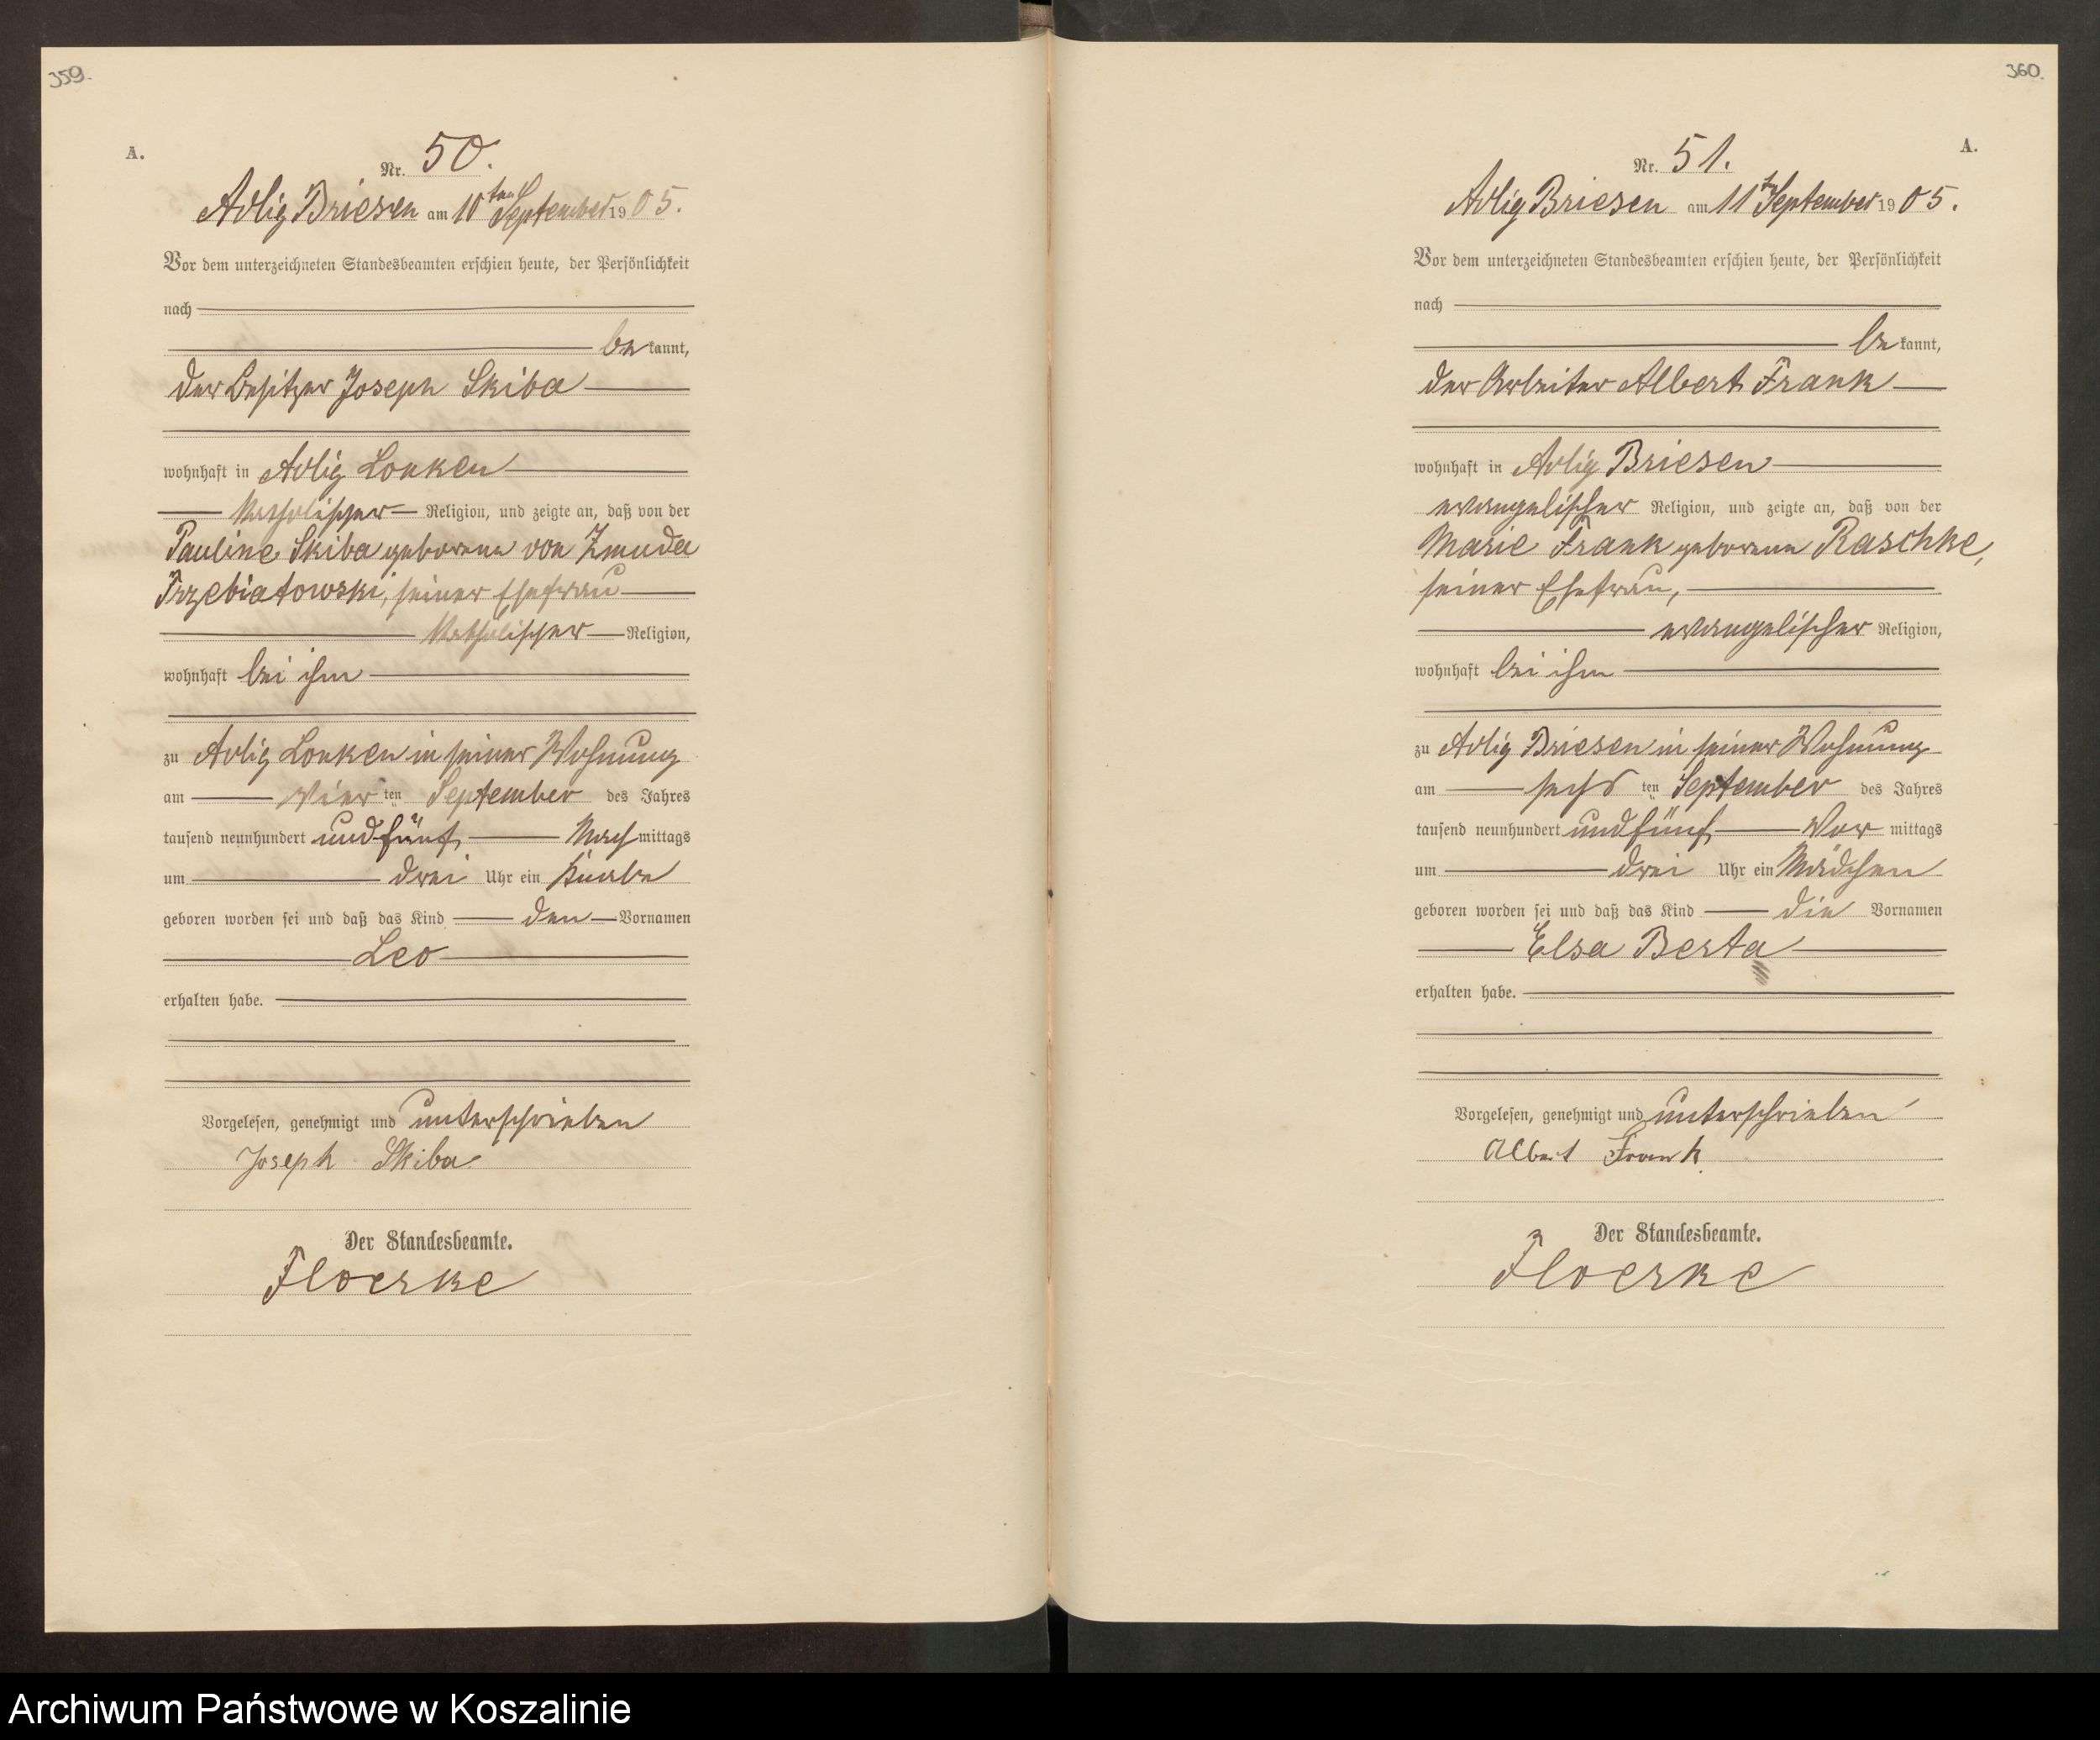 359.
A.
Nr. 50.
Adlig Briesen am 10ten September 1905.
Vor dem unterzeichneten Standesbeamten erschien heute, der Persönlichkeit
nach
be kannt,
der Besitzer Joseph Skiba
wohnhaft in Adlig Lonken
katholischer Religion, und zeigte an, daß von der
Pauline Skiba geborene von Zmuda
Trzebiatowski, seiner Ehefrau
katholischer Religion,
wohnhaft bei ihm
zu Adlig Lonken in seiner Wohnung
am vier ten September des Jahres
tausend neunhundert und fünf Nach mittags
um drei Uhr ein Knabe
geboren worden sei und daß das Kind den Vornamen
Leo
erhalten habe.
Vorgelesen, genehmigt und unterschrieben
Joseph Skiba
Der Standesbeamte.
Floerke
360.
A.
Nr. 51.
Adlig Briesen am 11ten September 1905.
Vor dem unterzeichneten Standesbeamten erschien heute, der Persönlichkeit
nach
be kannt,
der Arbeiter Albert Frank
wohnhaft in Adlig Briesen
evangelischer Religion, und zeigte an, daß von der
Marie Frank geborene Raschke,
seiner Ehefrau,
evangelischer Religion,
wohnhaft bei ihm
zu Adlig Briesen in seiner Wohnung
am sechs ten September des Jahres
tausend neunhundert und fünf Vor mittags
um drei Uhr ein Mädchen
geboren worden sei und daß das Kind die Vornamen
Elsa Berta
erhalten habe.
Vorgelesen, genehmigt und unterschrieben
Albert Frank
Der Standesbeamte.
Floerke
Archiwum Państwowe w Koszalinie